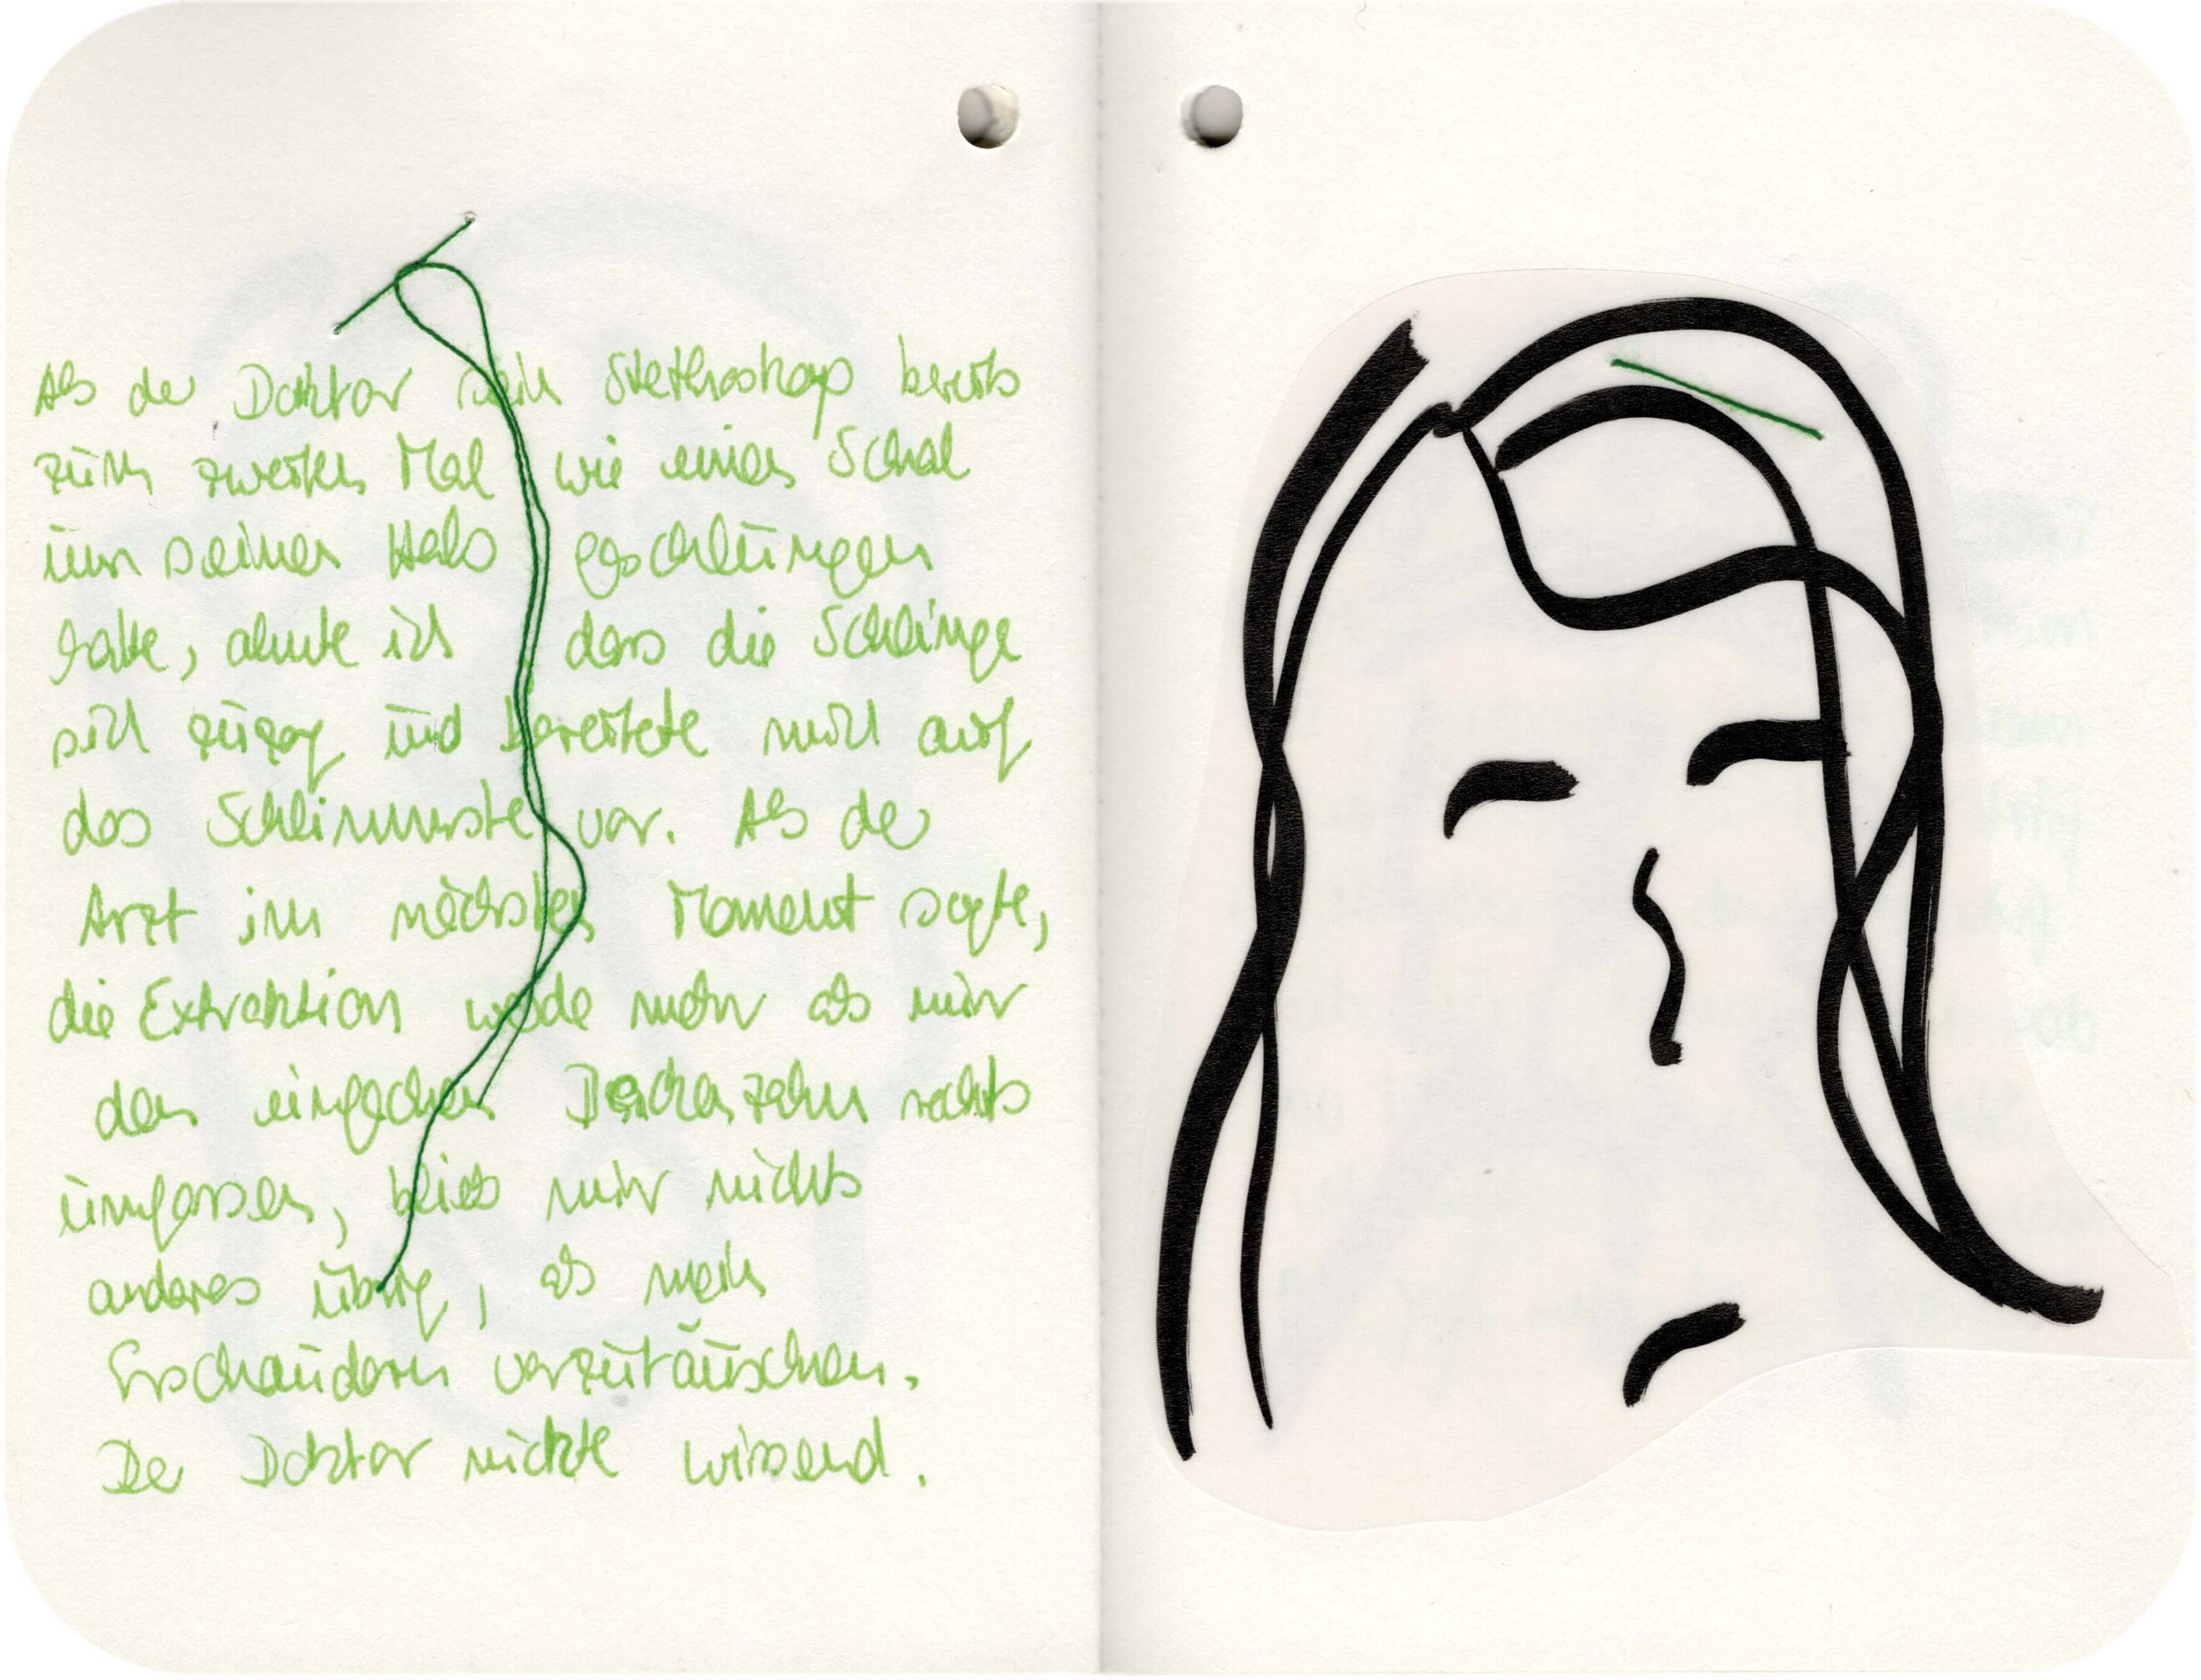 Als der Doktor sein Stethoskop bereits
zum zweiten Mal wie einen Schal
um seinen Hals geschlungen
hatte, ahnte ich dass die Schlinge
sich zuzog und bereitete mich auf
das Schlimmste vor. Als der
Arzt im nächsten Moment sagte,
die Extraktion werde mehr als nur
den einfachen zahn rechts
umfassen, blieb mir nichts
anderes übrig, als mein
Erschaudern vorzutäuschen.
Der Doktor nickte wissend.